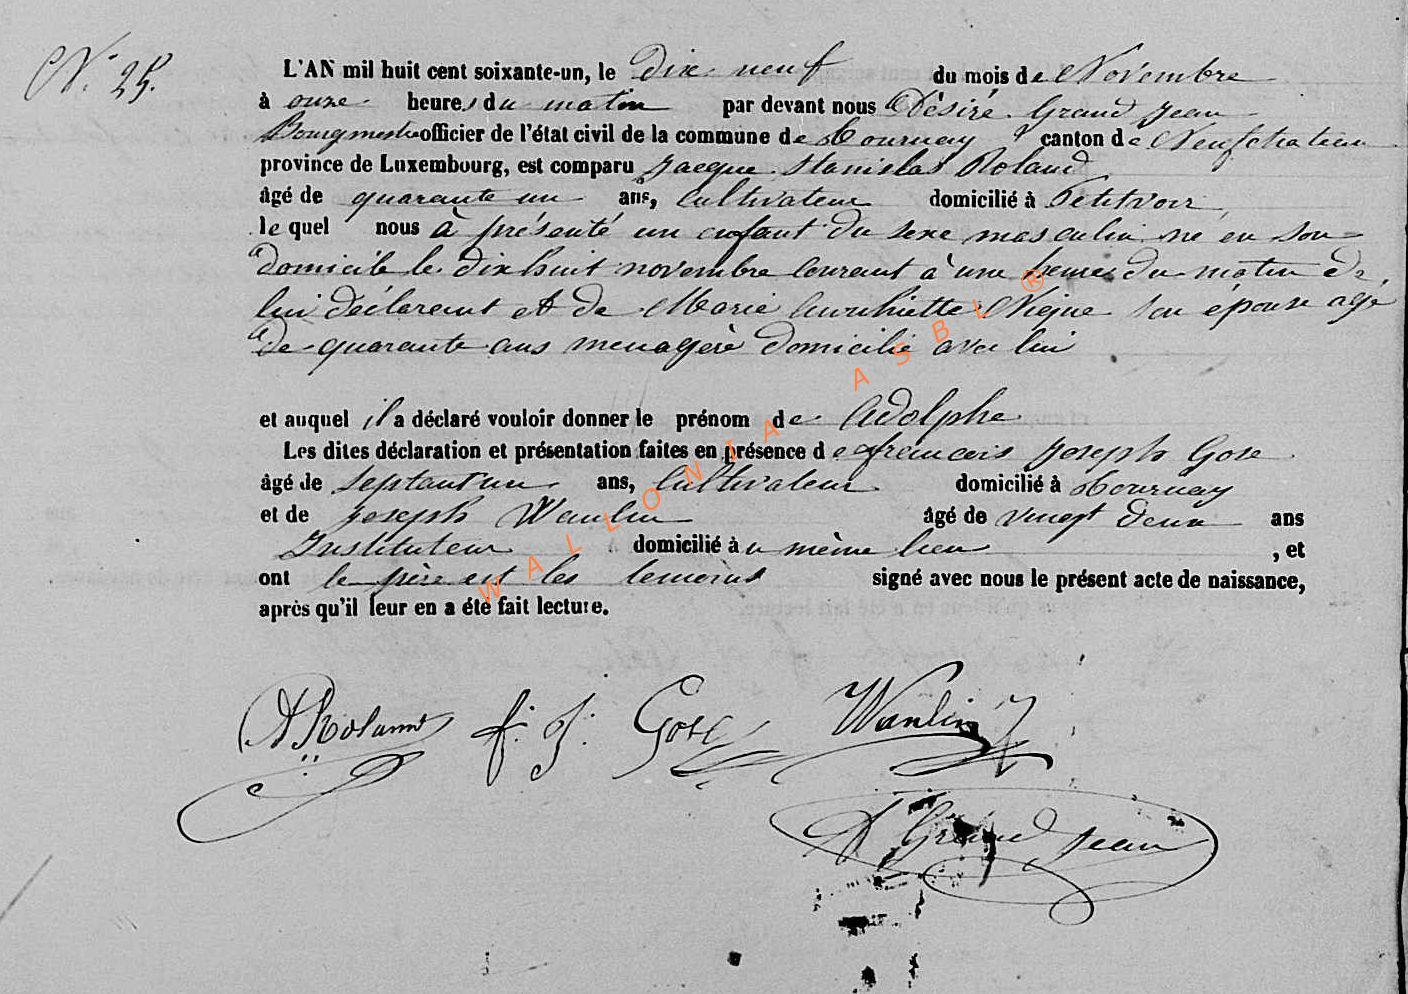 N.° 25.
L'AN mil huit cent soixante-un, le dix neuf du mois de Novembre
à onze heures du matin par devant nous Désiré Grand Jean
Bourgmestre officier de l'état civil de la commune de Tournay canton de Neufchateau
province de Luxembourg, est comparu Jacque Stanislas Roland
âgé de quarante un ans, Cultivateur domicilié à Petitvoir
lequel nous à présenté un enfant du sexe masculin né en son
domicile le dix huit novembre courant à une heures du matin de
lui déclarant et de Marie son épouse agé
de quarante ans menagère domicilié avec lui
et auquel il a déclaré vouloir donner le prénom de Adolphe
Les dites déclaration et présentation faites en présence de francois Joseph Gose
âgé de septant'un ans, Cultivateur domicilié à Tournay
et de Joseph Wanlin âgé de vingt deux ans
Instituteur domicilié à u même lieu , et
ont le père et les temoins signé avec nous le présent acte de naissance,
après qu'il leur en a été fait lecture.
WALLONIA ASBL ®
Roland f. J. Gose Wanlin J
D Grand Jean